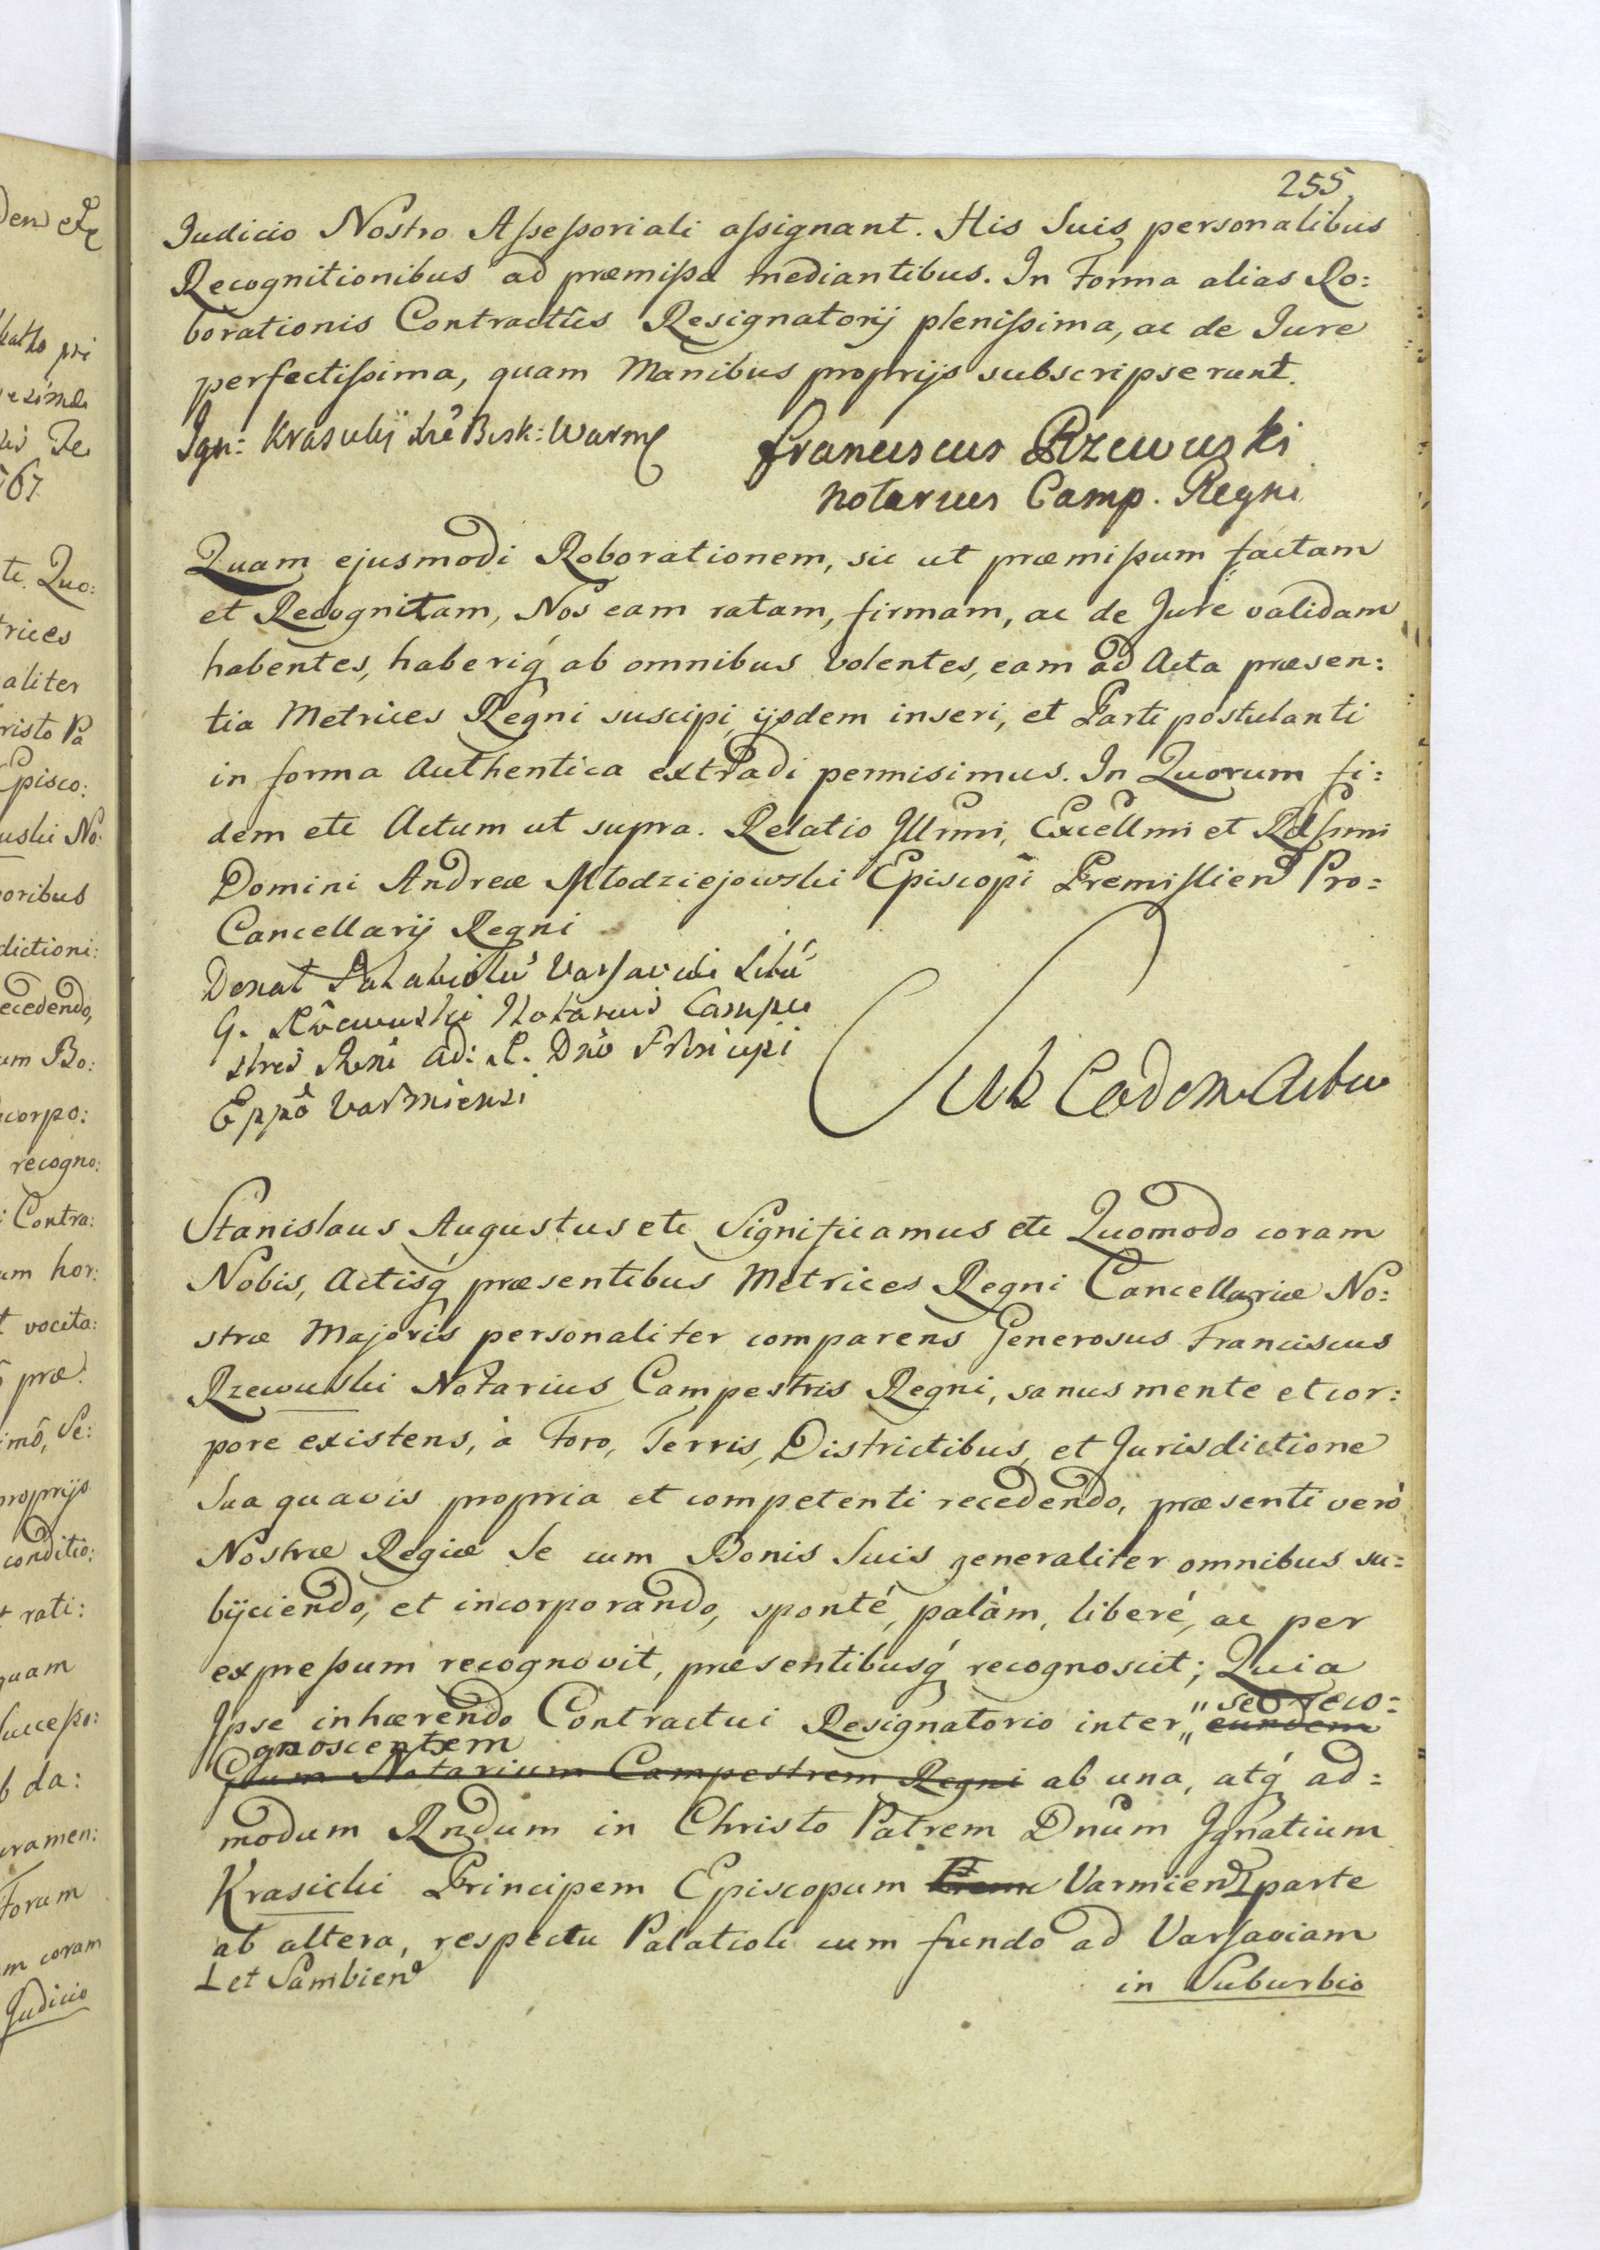 255
Judicio Nostro Assessoriali assignant. His Suis personalibus
Recognitionibus ad præmissa mediantibus. In Forma alias Ro:
borationis Contractûs Resignatorij plenissima, ac de Jure
perfectissima, quam Manibus proprijs subscripserunt.
Ign: Krasicki Bisk: Warm
Franciscus Rzewuski
notarius Camp. Regni
Quam ejusmodi Roborationem, sic ut præmissum factam
et Recognitam, Nos eam ratam, firmam, ac de Jure validam
habentes, haberiq́ ab omnibus volentes, eam ad Acta præsen:
tia Metrices Regni suscipi, ijsdem inseri, et Parti postulanti
in forma Authentica extradi permisimus. In Quorum fi:
dem etc Actum ut supra. Relatio Illmi, Excellmi et Rdssmi
Domini Andreæ Młodziejowski Episcopi Premislien Pro:
Cancellarij Regni
Donat Varsaviae
G. Rzewuski Notarius Campe
stris Regni ad: R. Dno Principi
Eppo Varmiensi
Sub Eodem Actu
Stanislaus Augustus etc Significamus etc Quomodo coram
Nobis, Actisq́ præsentibus Metrices Regni Cancellariæ No:
stræ Majoris personaliter comparens Generosus Franciscus
Rzewuski Notarius Campestris Regni, sanus mente et cor:
pore existens, à Foro, Terris, Districtibus, et Jurisdictione
Sua quavis propria et competenti recedendo, præsenti verò
Nostræ Regiæ Se cum Bonis Suis generaliter omnibus su:
bijciendo, et incorporando, sponté, palàm, liberé, ac per
expressum recognovit, præsentibusq́ recognoscit; Quia
Ipse inhærendo Contractui Resignatorio inter „ se reco:
eundem
gnoscentem
Notarium Campestrem Regni ab una, atq́ ad:
modum Rndum in Christo Patrem Dnum Ignatium
Krasicki Principem Episcopum Prem Varmien parte
ab altera, respectu Palatioli cum fundo ad Varsaviam
et Sambien
in Suburbio